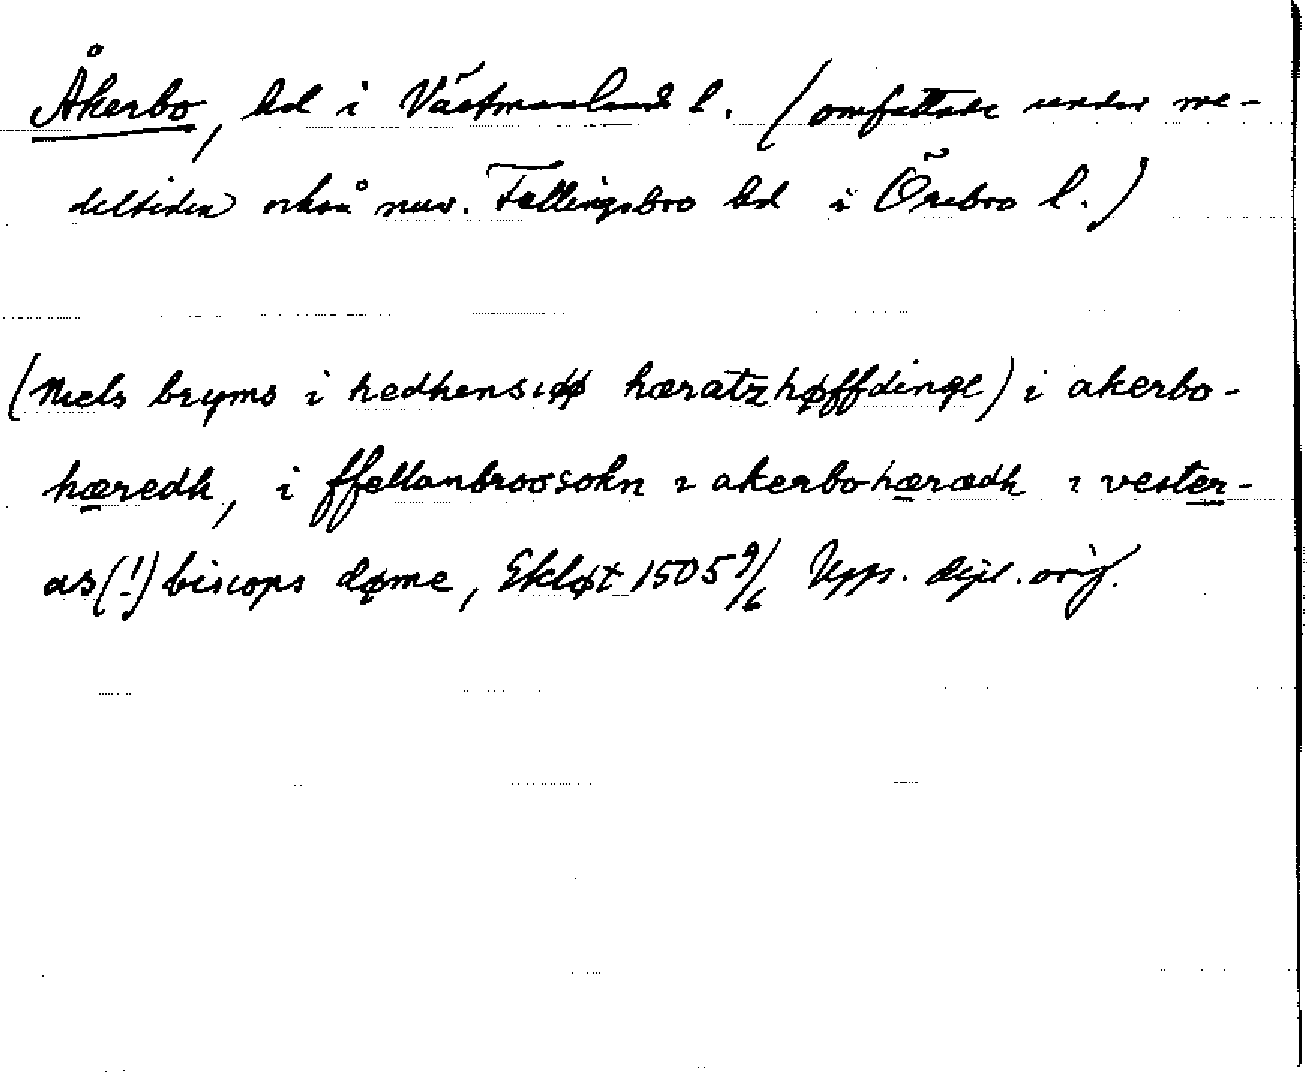 Åkerbo, hd i Västmanlands l. (omfattade under me-
deltiden också nuv. Fellingsbro hd i Örebro l.)
(Niels bryms i hedhensiøø hæratzhøffdinge) i akerbo-
hæredh, i ffellanbroosokn i akerbohærædh i vester-
as(!) biscops døme, Ekløt 1505 9/6 Upps. dipl. orig.